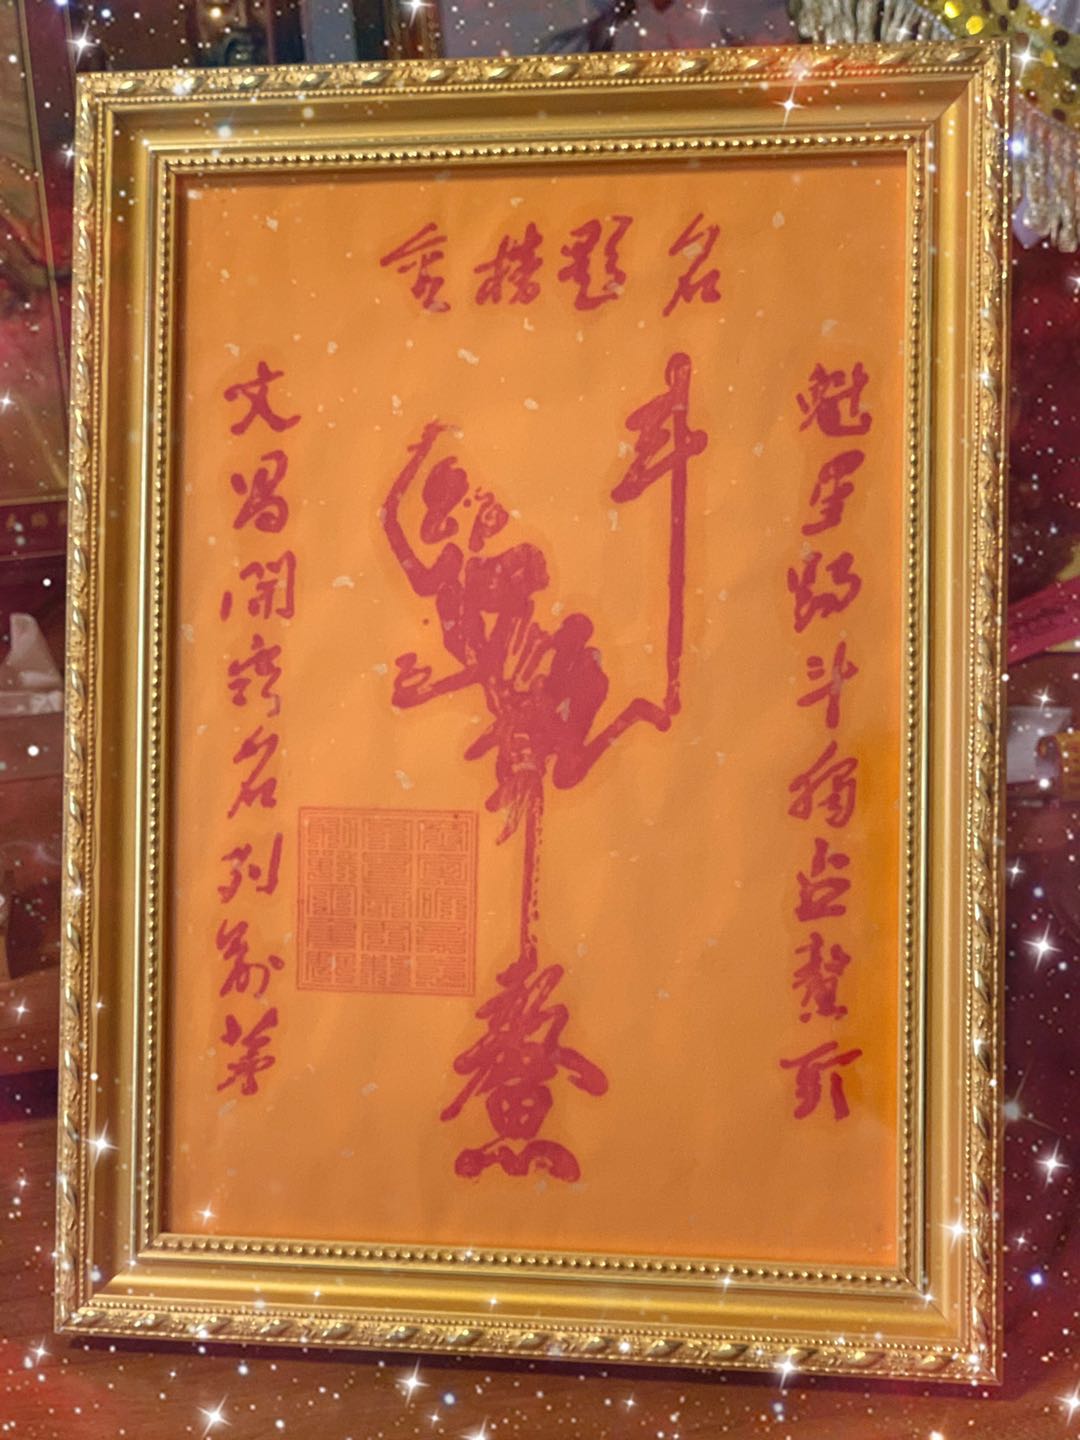 金榜題名
魁星踢斗獨占鰲頭
斗
鰲
文昌開竅名列前茅